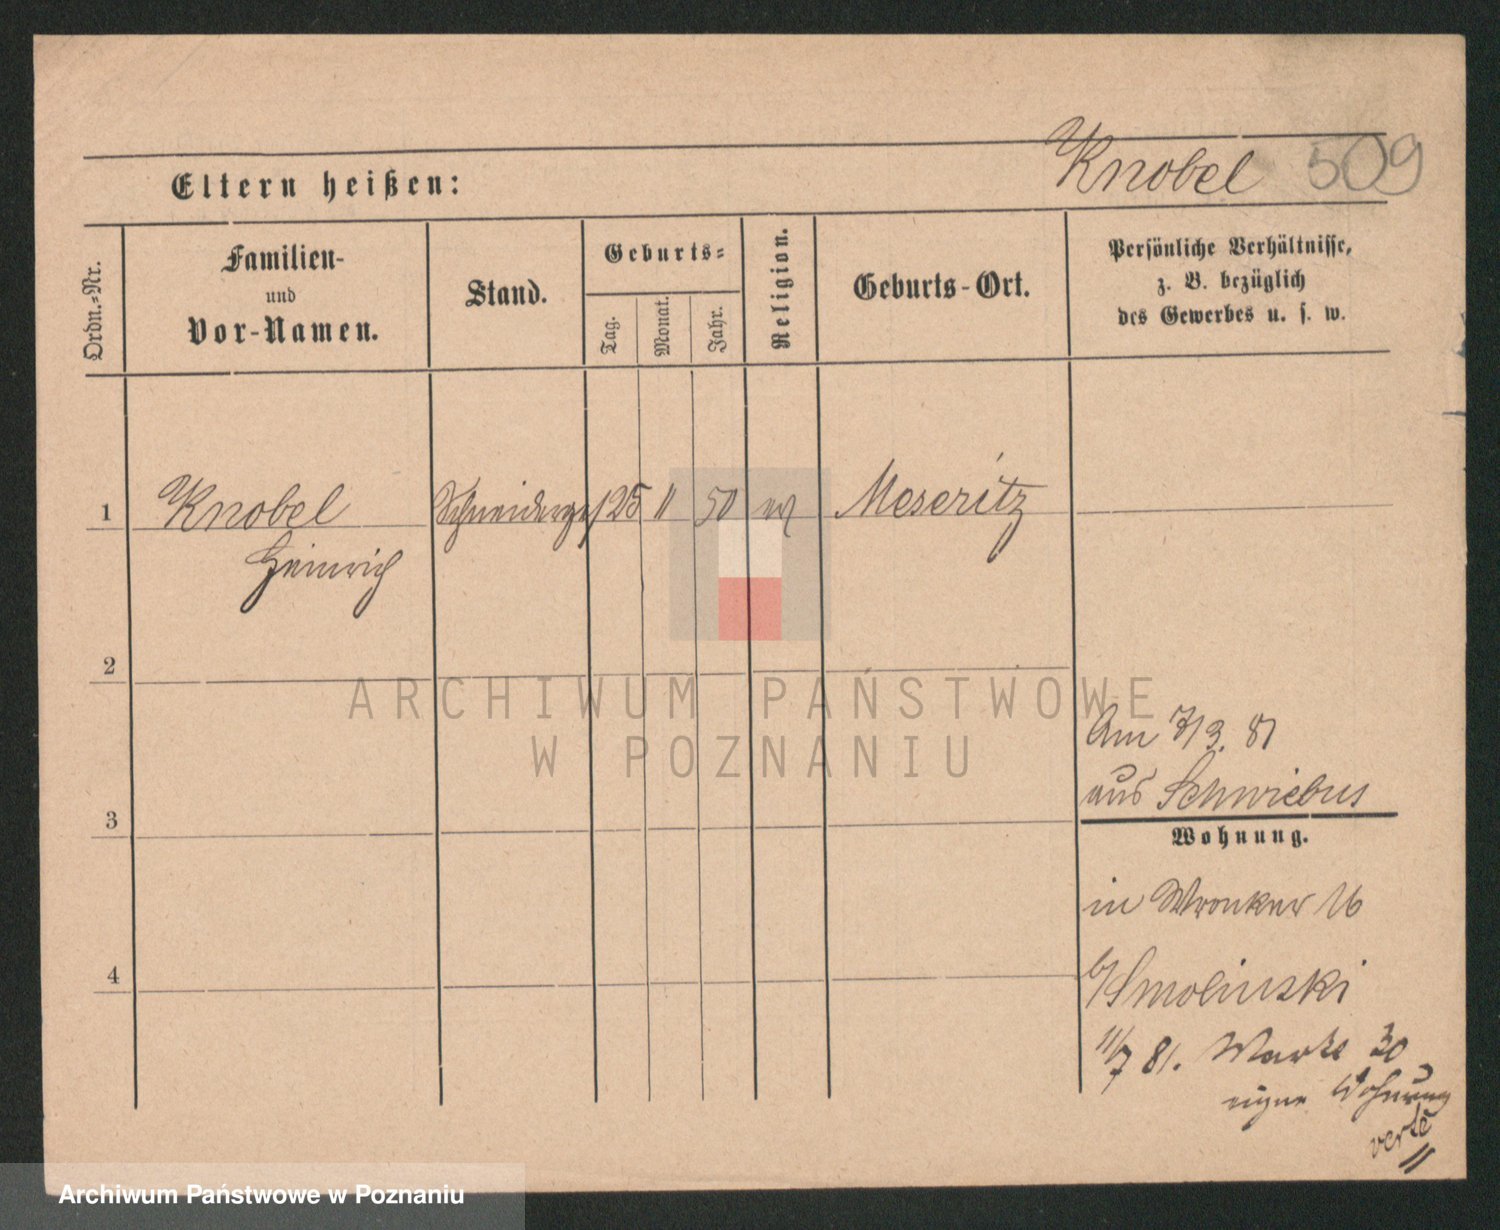 Knobel 509
Eltern heißen:
Ordn.-Nr.
Familien-
und
Vor-Namen.
Stand.
Geburts-
Tag.
Monat.
Jahr.
Religion.
Geburts-Ort.
Persönliche Verhältnisse,
z. B. bezüglich
des Gewerbes u. s. w.
1 Knobel Schneiderges 25 11 50 ev Meseritz
Heinrich
2
ARCHIWUM PAŃSTWOWE
W POZNANIU
Am 7/3. 81
aus Schwiebus
3
Wohnung.
in Wronker 16
4
b/Smolinski
11/7 81. Markt 30
eigne Wohnung
verte
Archiwum Państwowe w Poznaniu